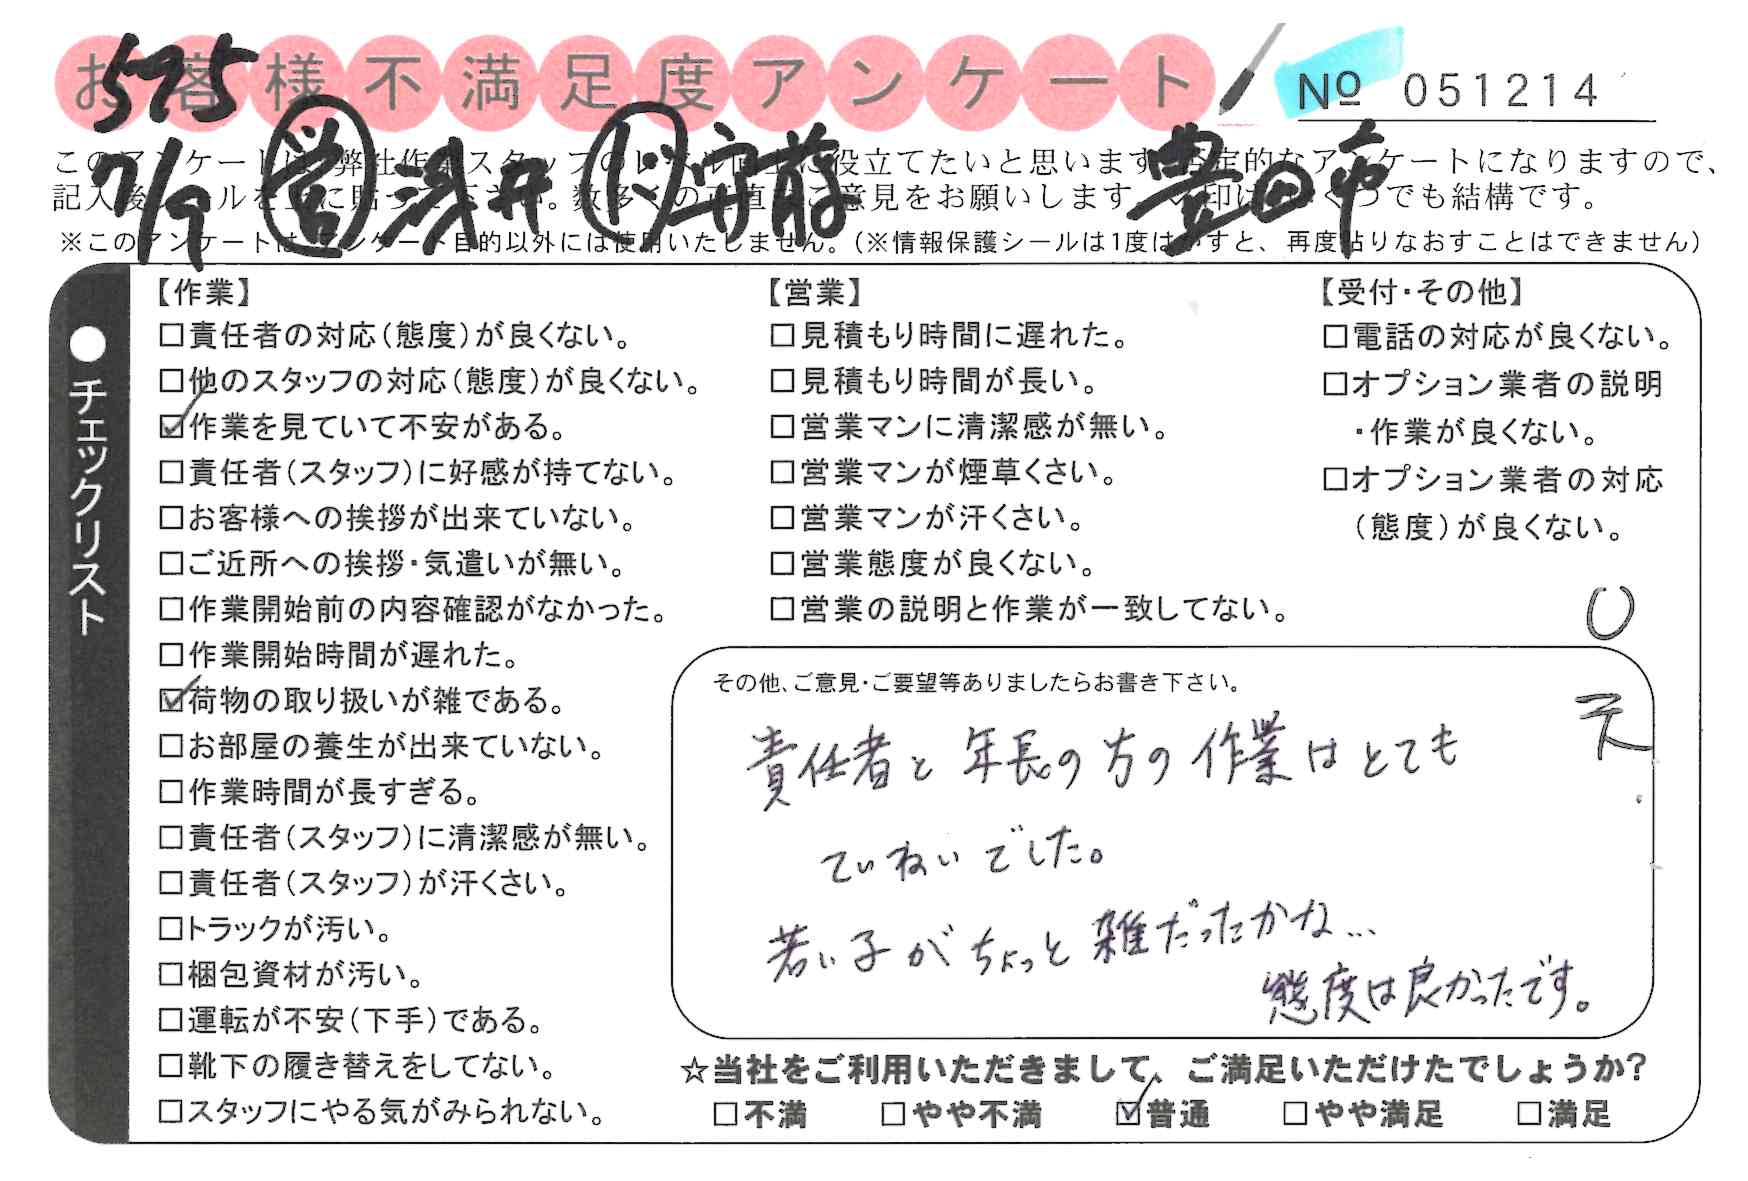 お客様不満足度アンケート
№ 051214
575
7/9 営 浅井 ド 守前 豊田市
このアンケートは、弊社作業スタッフのレベル向上に役立てたいと思います。否定的なアンケートになりますので、
記入後シールを上に貼って下さい。数多くの正直なご意見をお願いします。✓印はいくつでも結構です。
※このアンケートは、アンケート目的以外には使用いたしません。（※情報保護シールは1度はがすと、再度貼りなおすことはできません）
●チェックリスト
【作業】
□責任者の対応（態度）が良くない。
□他のスタッフの対応（態度）が良くない。
☑作業を見ていて不安がある。
□責任者（スタッフ）に好感が持てない。
□お客様への挨拶が出来ていない。
□ご近所への挨拶・気遣いが無い。
□作業開始前の内容確認がなかった。
□作業開始時間が遅れた。
☑荷物の取り扱いが雑である。
□お部屋の養生が出来ていない。
□作業時間が長すぎる。
□責任者（スタッフ）に清潔感が無い。
□責任者（スタッフ）が汗くさい。
□トラックが汚い。
□梱包資材が汚い。
□運転が不安（下手）である。
□靴下の履き替えをしてない。
□スタッフにやる気がみられない。
【営業】
□見積もり時間に遅れた。
□見積もり時間が長い。
□営業マンに清潔感が無い。
□営業マンが煙草くさい。
□営業マンが汗くさい。
□営業態度が良くない。
□営業の説明と作業が一致してない。
【受付・その他】
□電話の対応が良くない。
□オプション業者の説明
・作業が良くない。
□オプション業者の対応
（態度）が良くない。
その他、ご意見・ご要望等ありましたらお書き下さい。
責任者と年長の方の作業はとても
ていねいでした。
若い子がちょっと雑だったかな…
態度は良かったです。
☆当社をご利用いただきまして、ご満足いただけたでしょうか？
□不満 □やや不満 ☑普通 □やや満足 □満足